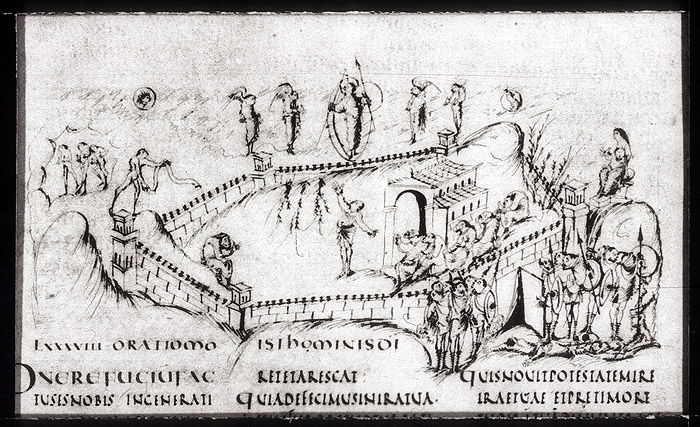 LXXXVIII ORATIOMO ISIHOMINISDI
DNEREFUGIUFAC
TUSESNOBIS INGENERATI
RETETARESCAT
QUIADEFECIMUSINIRATUA
QUISNOUITPOTESTATEMIRE
IRAETUAE ETPRETIMORE